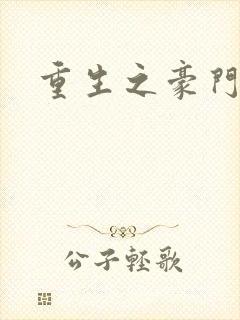 重生之豪門
公子輕歌